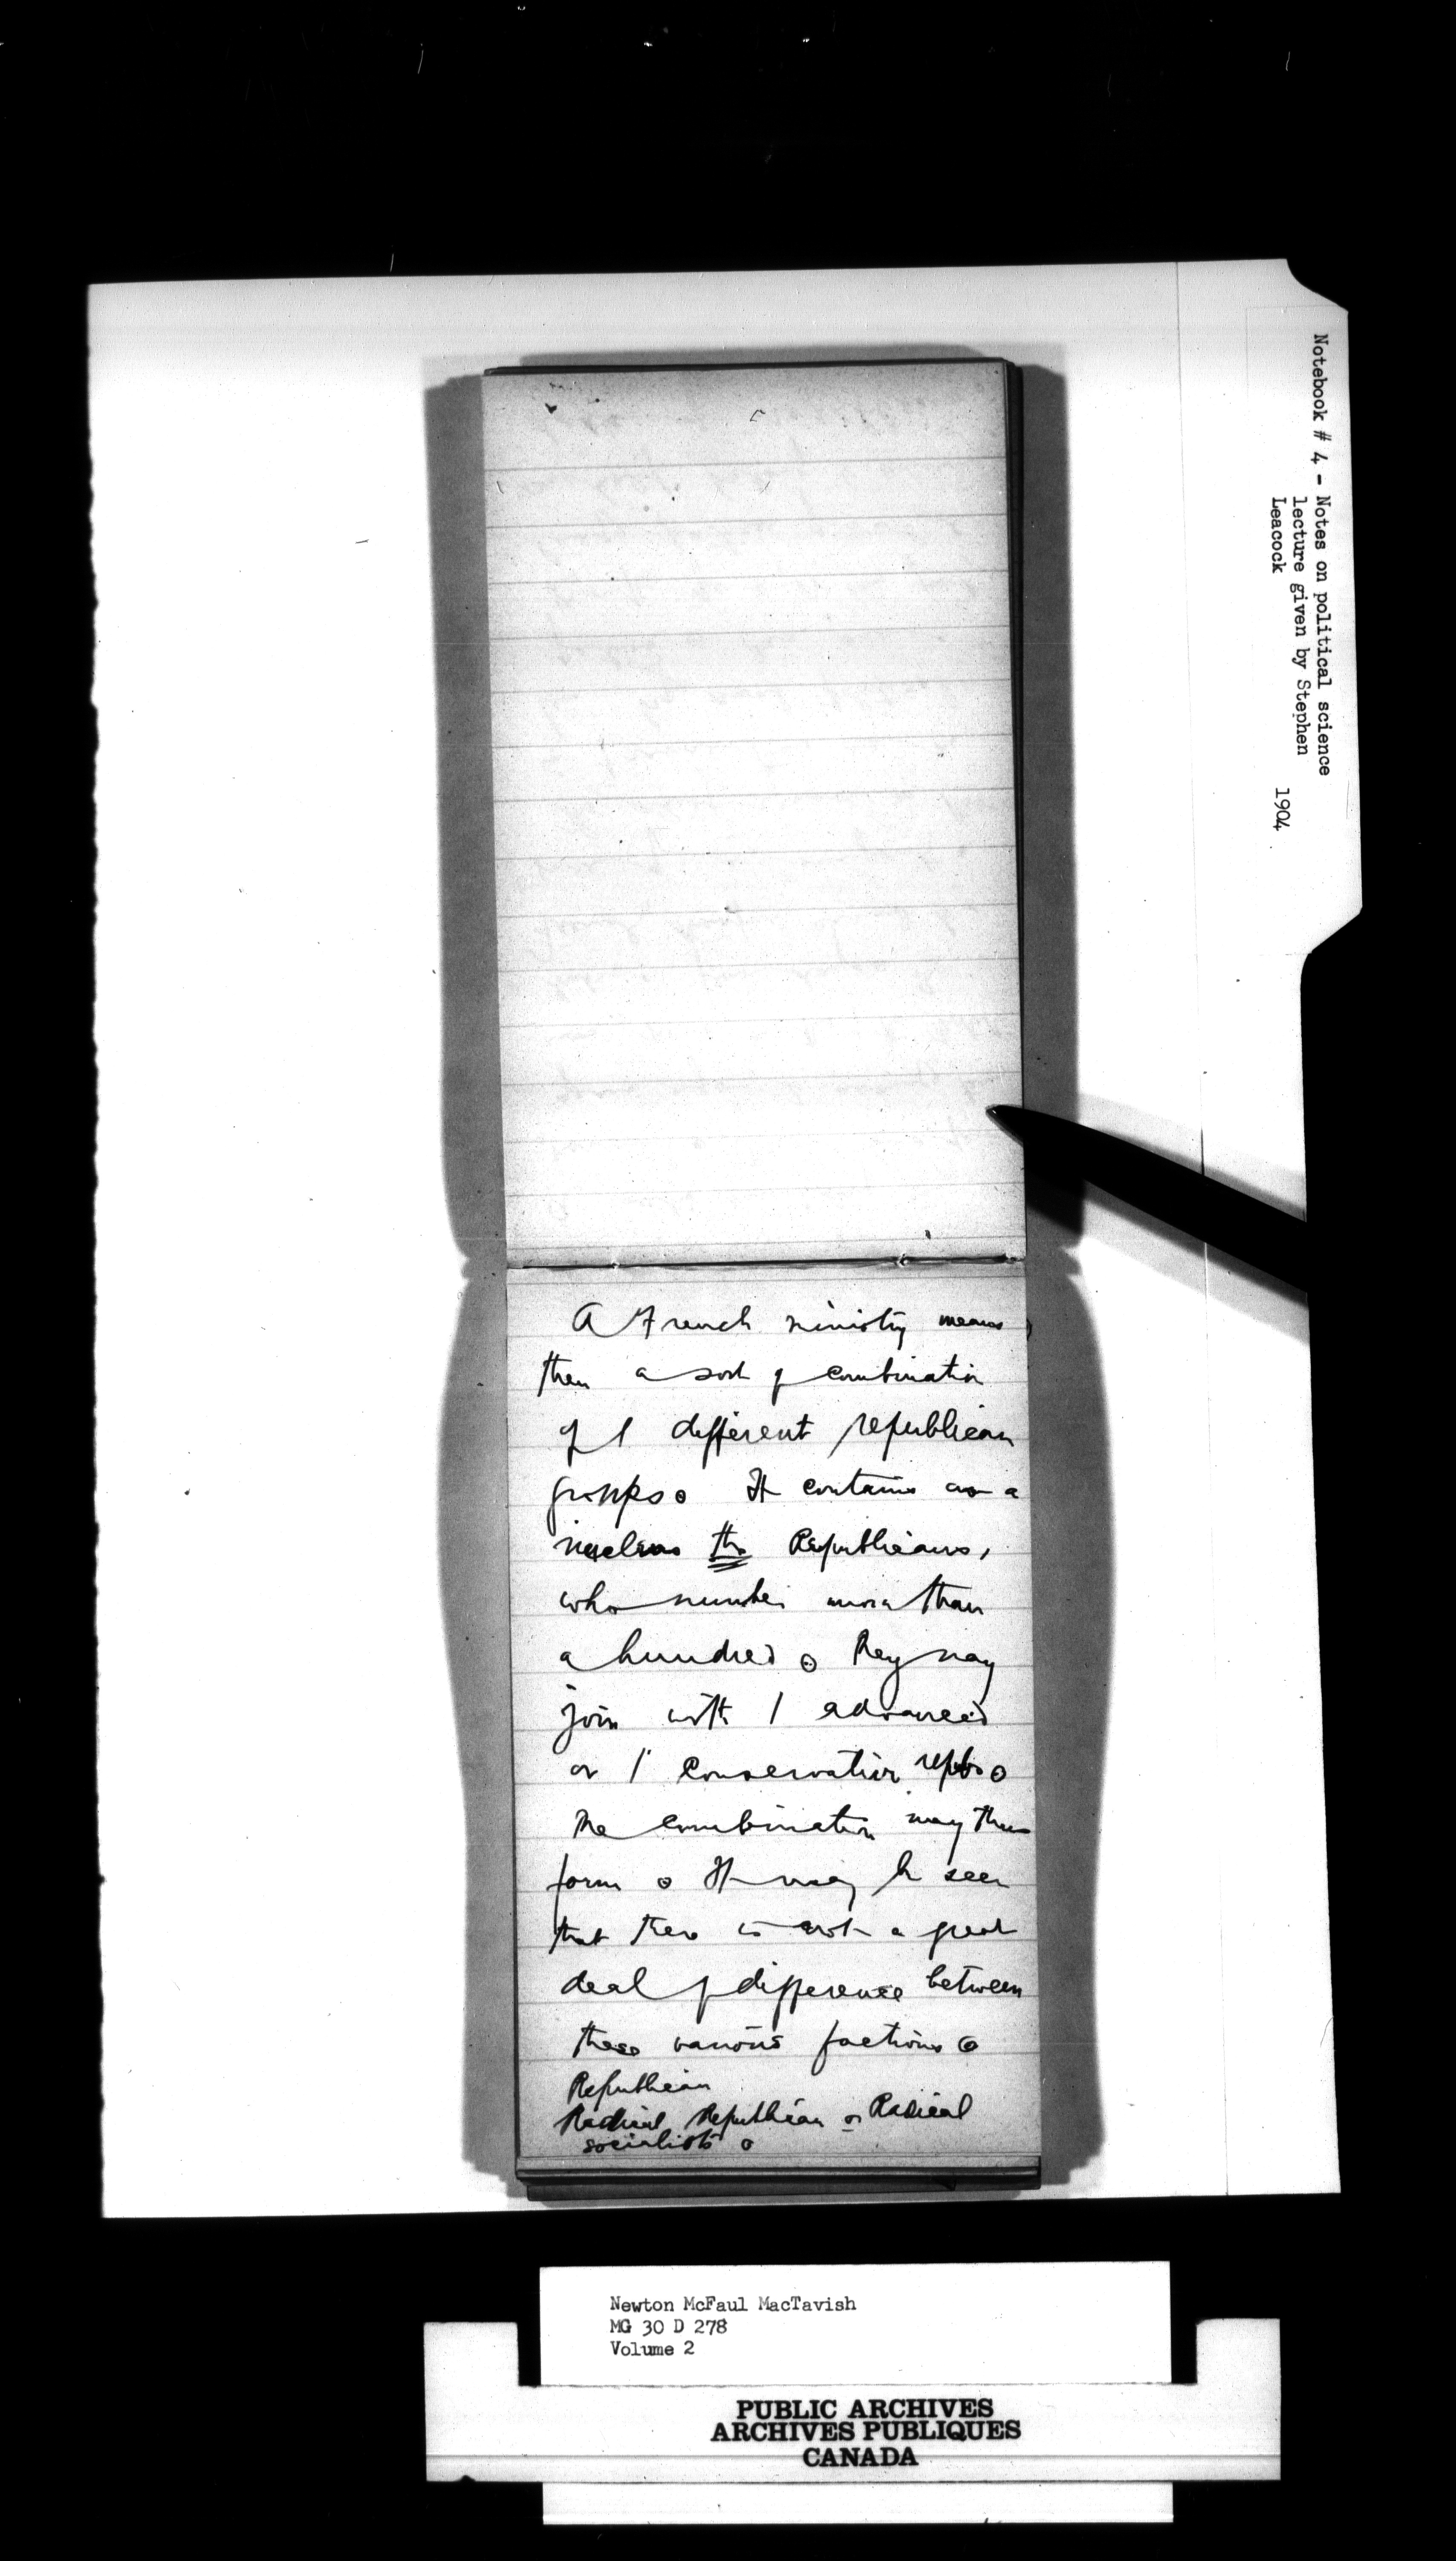 Notebook # 4 - Notes on political science
lecture given by Stephen
Leacock
1904
A French ministry means
then a sort of combination
of / different republican
groups. It contains as a
nucleus the Republicans,
who number more than
a hundred. They may
join with / advanced
or / conservative repbs.
The combination may thus
form. It may be seen
that there is not a great
deal of difference between
these various factions.
Republican
Radical Republican or Radical
socialists.
Newton McFaul MacTavish
MG 30 D 278
Volume 2
PUBLIC ARCHIVES
ARCHIVES PUBLIQUES
CANADA